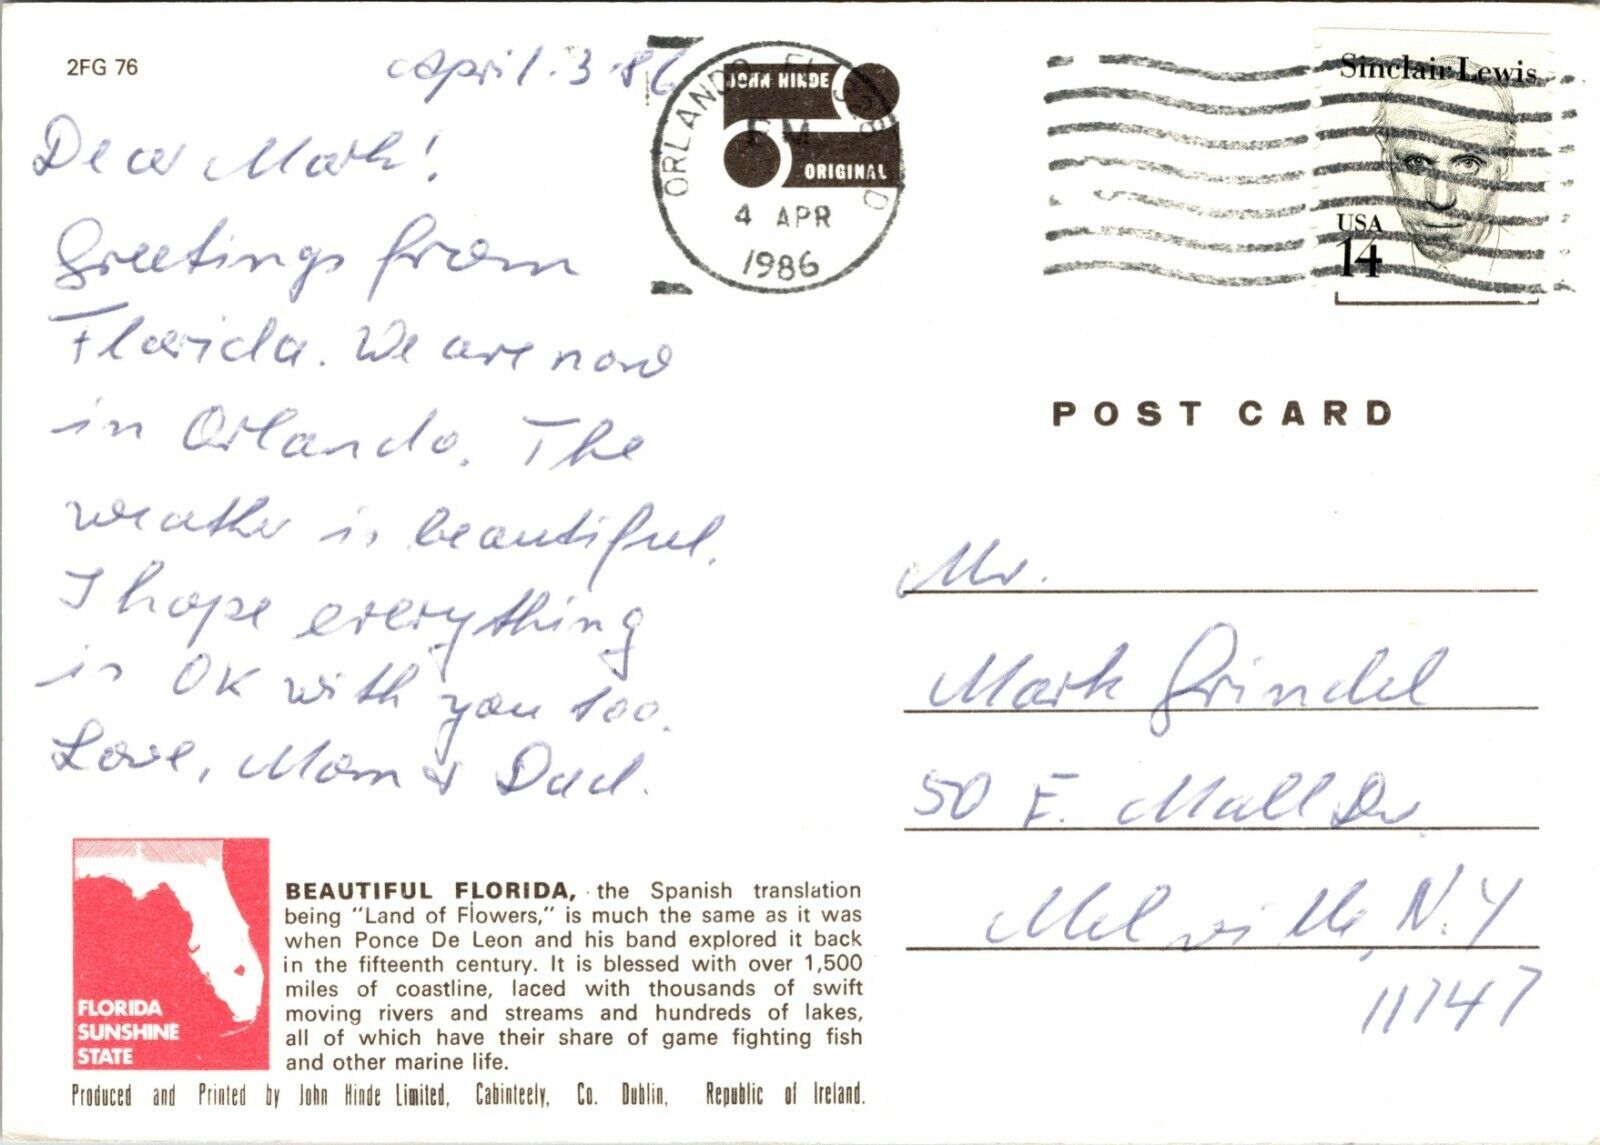 2FG 76
April. 3. 86
Dear Mark!
Greetings from
Florida. We are now
in Orlando. The
weather is beautiful.
I hope everything
is OK with you too.
Love, Mom & Dad.
JOHN HINDE
ORIGINAL
ORLANDO FL
PM
4 APR
1986
Sinclair Lewis
USA
14
POST CARD
Mr.
Mark Grindel
50 E. Mall Dr.
Melville, N.Y
11747
FLORIDA
SUNSHINE
STATE
BEAUTIFUL FLORIDA, the Spanish translation
being "Land of Flowers," is much the same as it was
when Ponce De Leon and his band explored it back
in the fifteenth century. It is blessed with over 1,500
miles of coastline, laced with thousands of swift
moving rivers and streams and hundreds of lakes,
all of which have their share of game fighting fish
and other marine life.
Produced and Printed by John Hinde Limited, Cabinteely, Co. Dublin, Republic of Ireland.